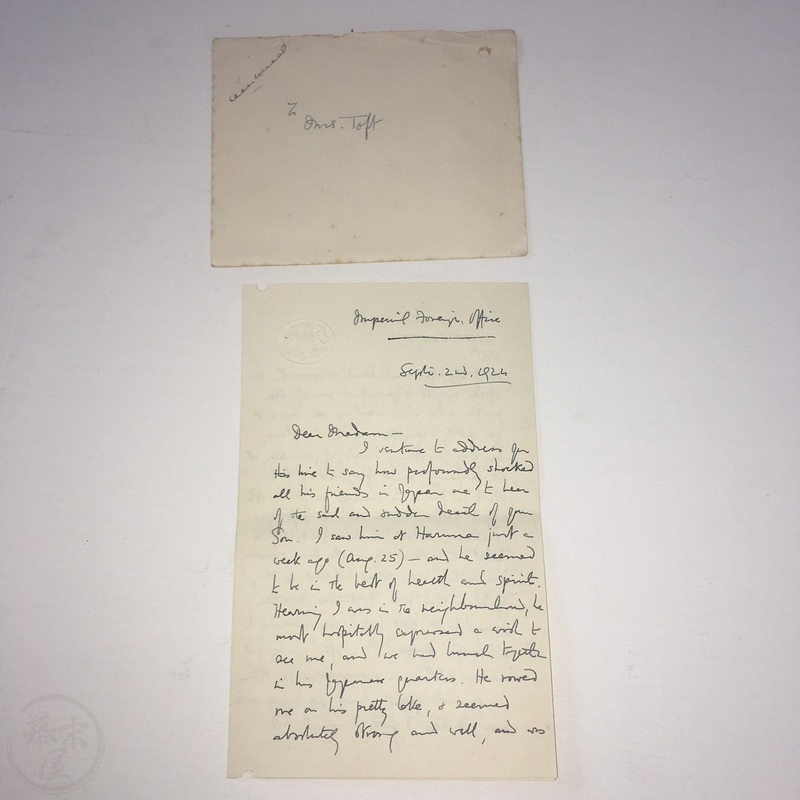 Mrs. Toft
Imperial Foreign Office
Sept. 2nd. 1924
Dear Madam —
I venture to address you
this line to say how profoundly shocked
all his friends in Japan are to hear
of the sad and sudden death of your
Son. I saw him at Haruna just a
week ago (Aug. 25) — and he seemed
to be in the best of health and spirits.
Hearing I was in the neighbourhood, he
most hospitably expressed a wish to
see me, and we had lunch together
in his Japanese quarters. He rowed
me on his pretty lake, & seemed
absolutely strong and well, and was
幕末屋